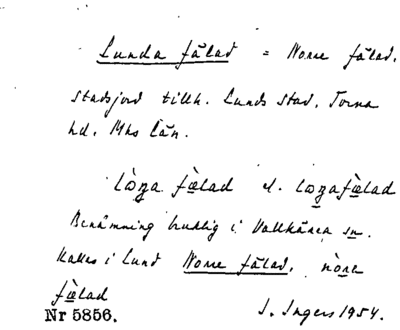 Lunda fälad = Norre fälad,
stadsjord tillh. Lunds stad, Torna
hd, Mhs län.
fèlad el.
Benämning bruklig i Vallkärra sn.
Kallas i Lund Norre fälad, nòre
fèlad
Nr 5856. I. Ingers 1954.